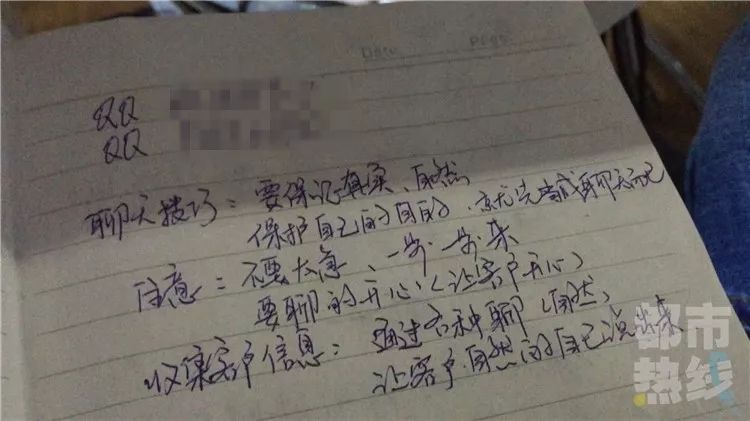 Date
Page
QQ
QQ
聊天技巧：要保证真实、自然
保护自己的目的． 当成聊天而已
注意：不要太急、一步步来
要聊的开心（让客户开心）
收集客户信息：通过各种聊（自然，
让客户．自然的自己说出来
都市
热线